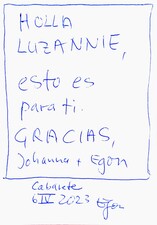 HOLLA
LUZANNIE,
esto es
para ti.
GRACIAS,
Johanna + Egon
Cabarete
6 IV 2023 Egon